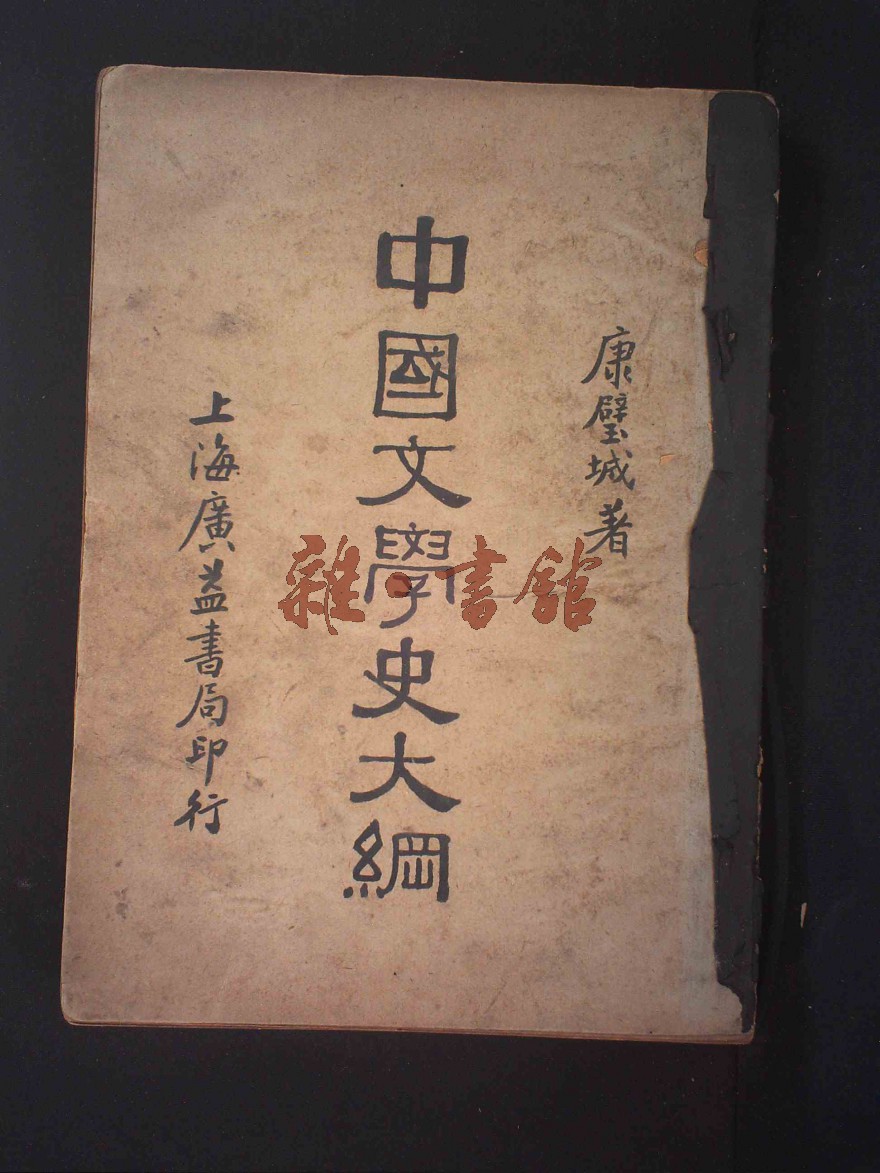 康璧城著
中國文學史大綱
上海廣益書局印行
雜·書館